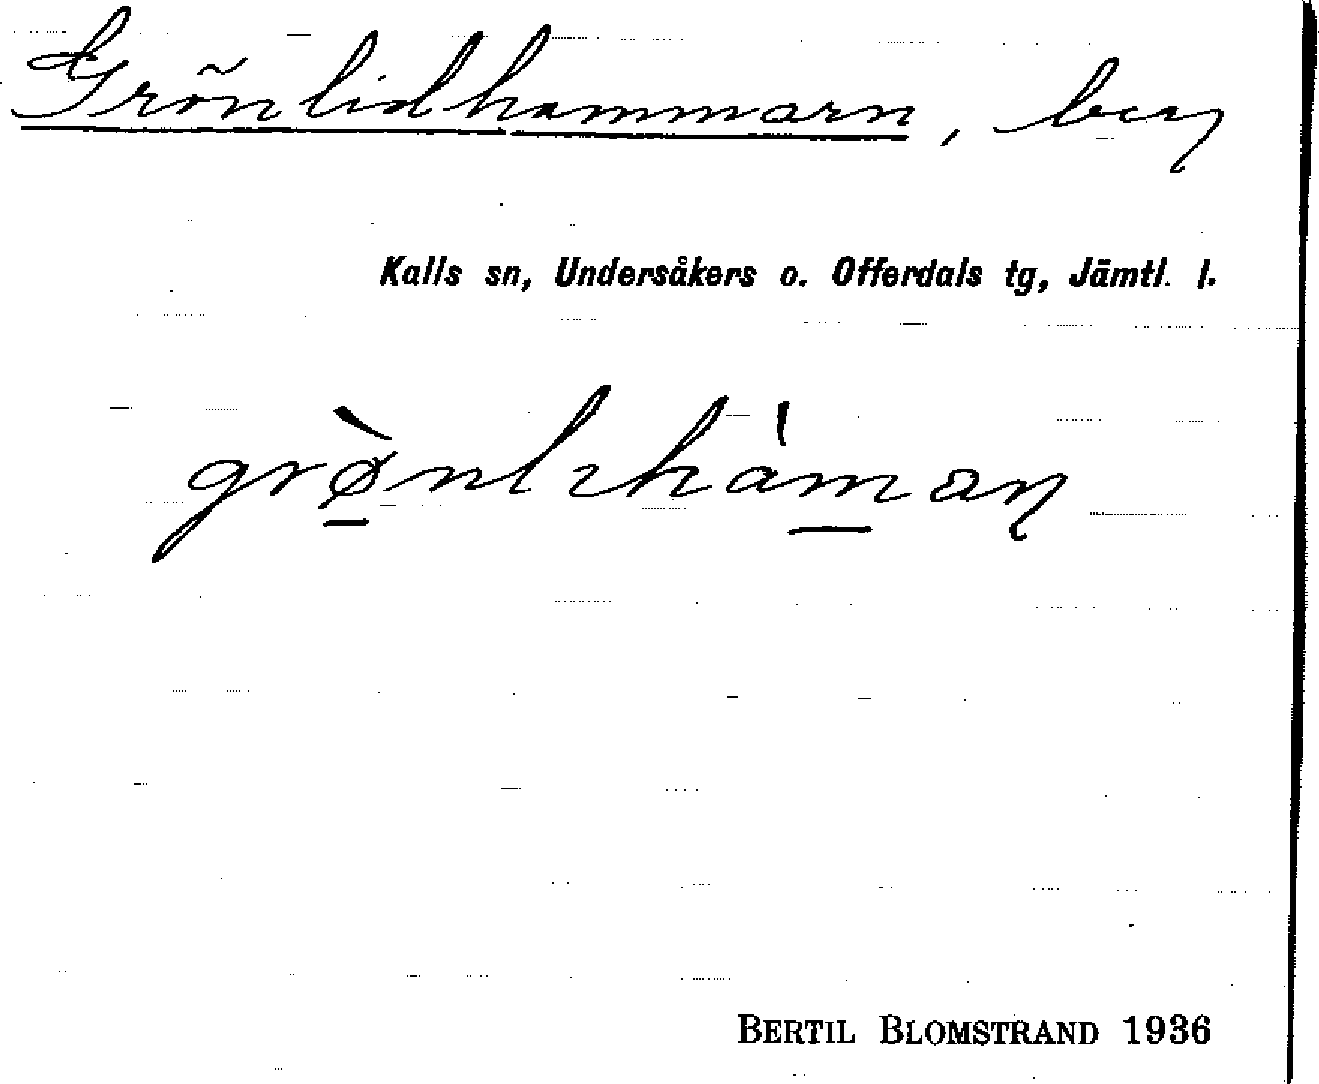 Grönlidhammarn, berg
Kalls sn, Undersåkers o. Offerdals tg, Jämtl. l.
BERTIL BLOMSTRAND 1936